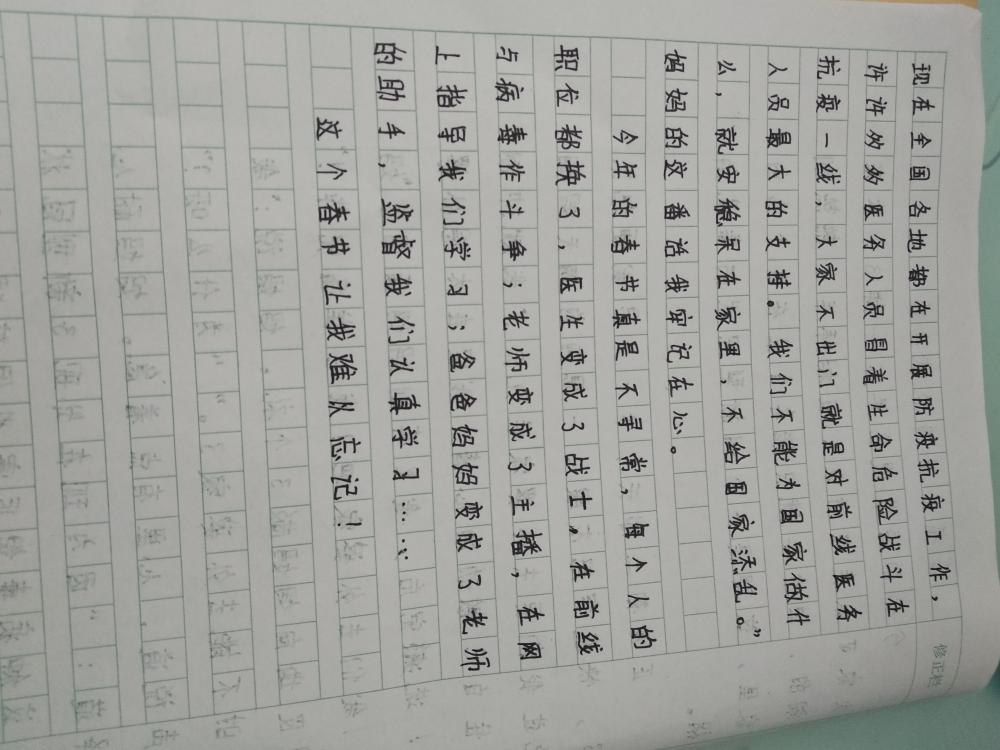 现在全国各地都在开展防疫抗疫工作，
许许多多医务人员冒着生命危险战斗在
抗疫一线，大家不出门就是对前线医务
人员最大的支持。我们不能为国家做什
么，就安稳呆在家里，不给国家添乱。”
妈妈的这番活我牢记在心。
今年的春书真是不寻常，每个人的
职位都换了，医生变成了战士，在前线
与病毒作斗争；老师变成了主播，在网
上指导我们学习；爸爸妈妈变成了老师
的助手，监督我们认真学习……
这个春书让我难从忘记！
修正栏